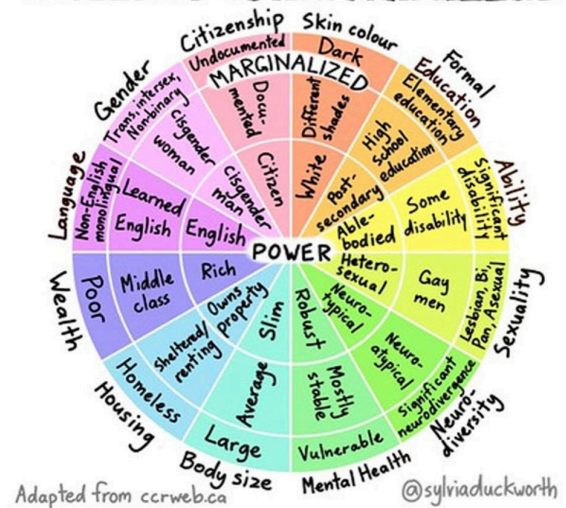 Citizenship
Undocumented
Docu-
mented
Citizen
Skin colour
Dark
Different
shades
White
Formal
Education
Elementary
education
High
School
education
Post-
secondary
Ability
Significant
disability
Some
disability
Able-
bodied
Sexuality
Lesbian, Bi,
Pan, Asexual
Gay
men
Hetero-
sexual
Neuro-
diversity
Significant
neurodivergence
Neuro-
atypical
Neuro-
typical
Mental Health
Vulnerable
Mostly
stable
Robust
Body size
Large
Average
Slim
Housing
Homeless
Sheltered/
renting
Owns
property
Wealth
Poor
Middle
class
Rich
Language
Non-English
monolingual
Learned
English
English
Gender
Trans, intersex,
Nonbinary
Cisgender
woman
Cisgender
man
MARGINALIZED
POWER
Adapted from ccrweb.ca
@sylviaduckworth